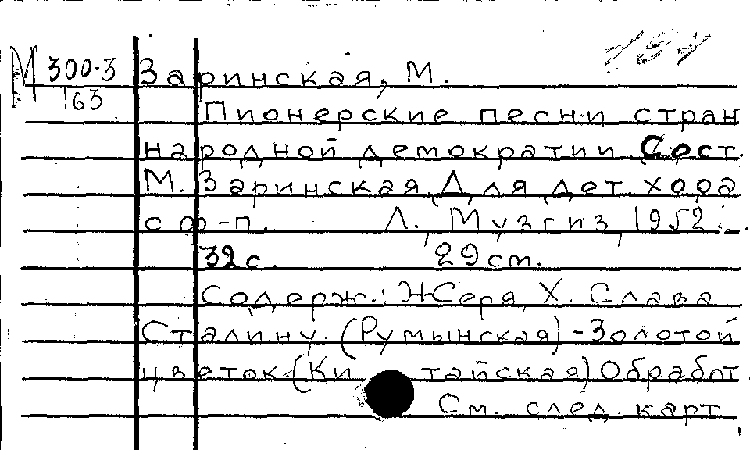 М 300-3 Заринская, М.
163
Пионерские песни стран
народной демократии. Сост.
М. Заринская. Для дет. хора
с ф-п. Л., Музгиз, 1952.
32 с. 29 см.
Содерж.: Х. Слава
Сталину. (Румынская) - Золотой
цветок (Китайская) Обработ.
См. след. карт.